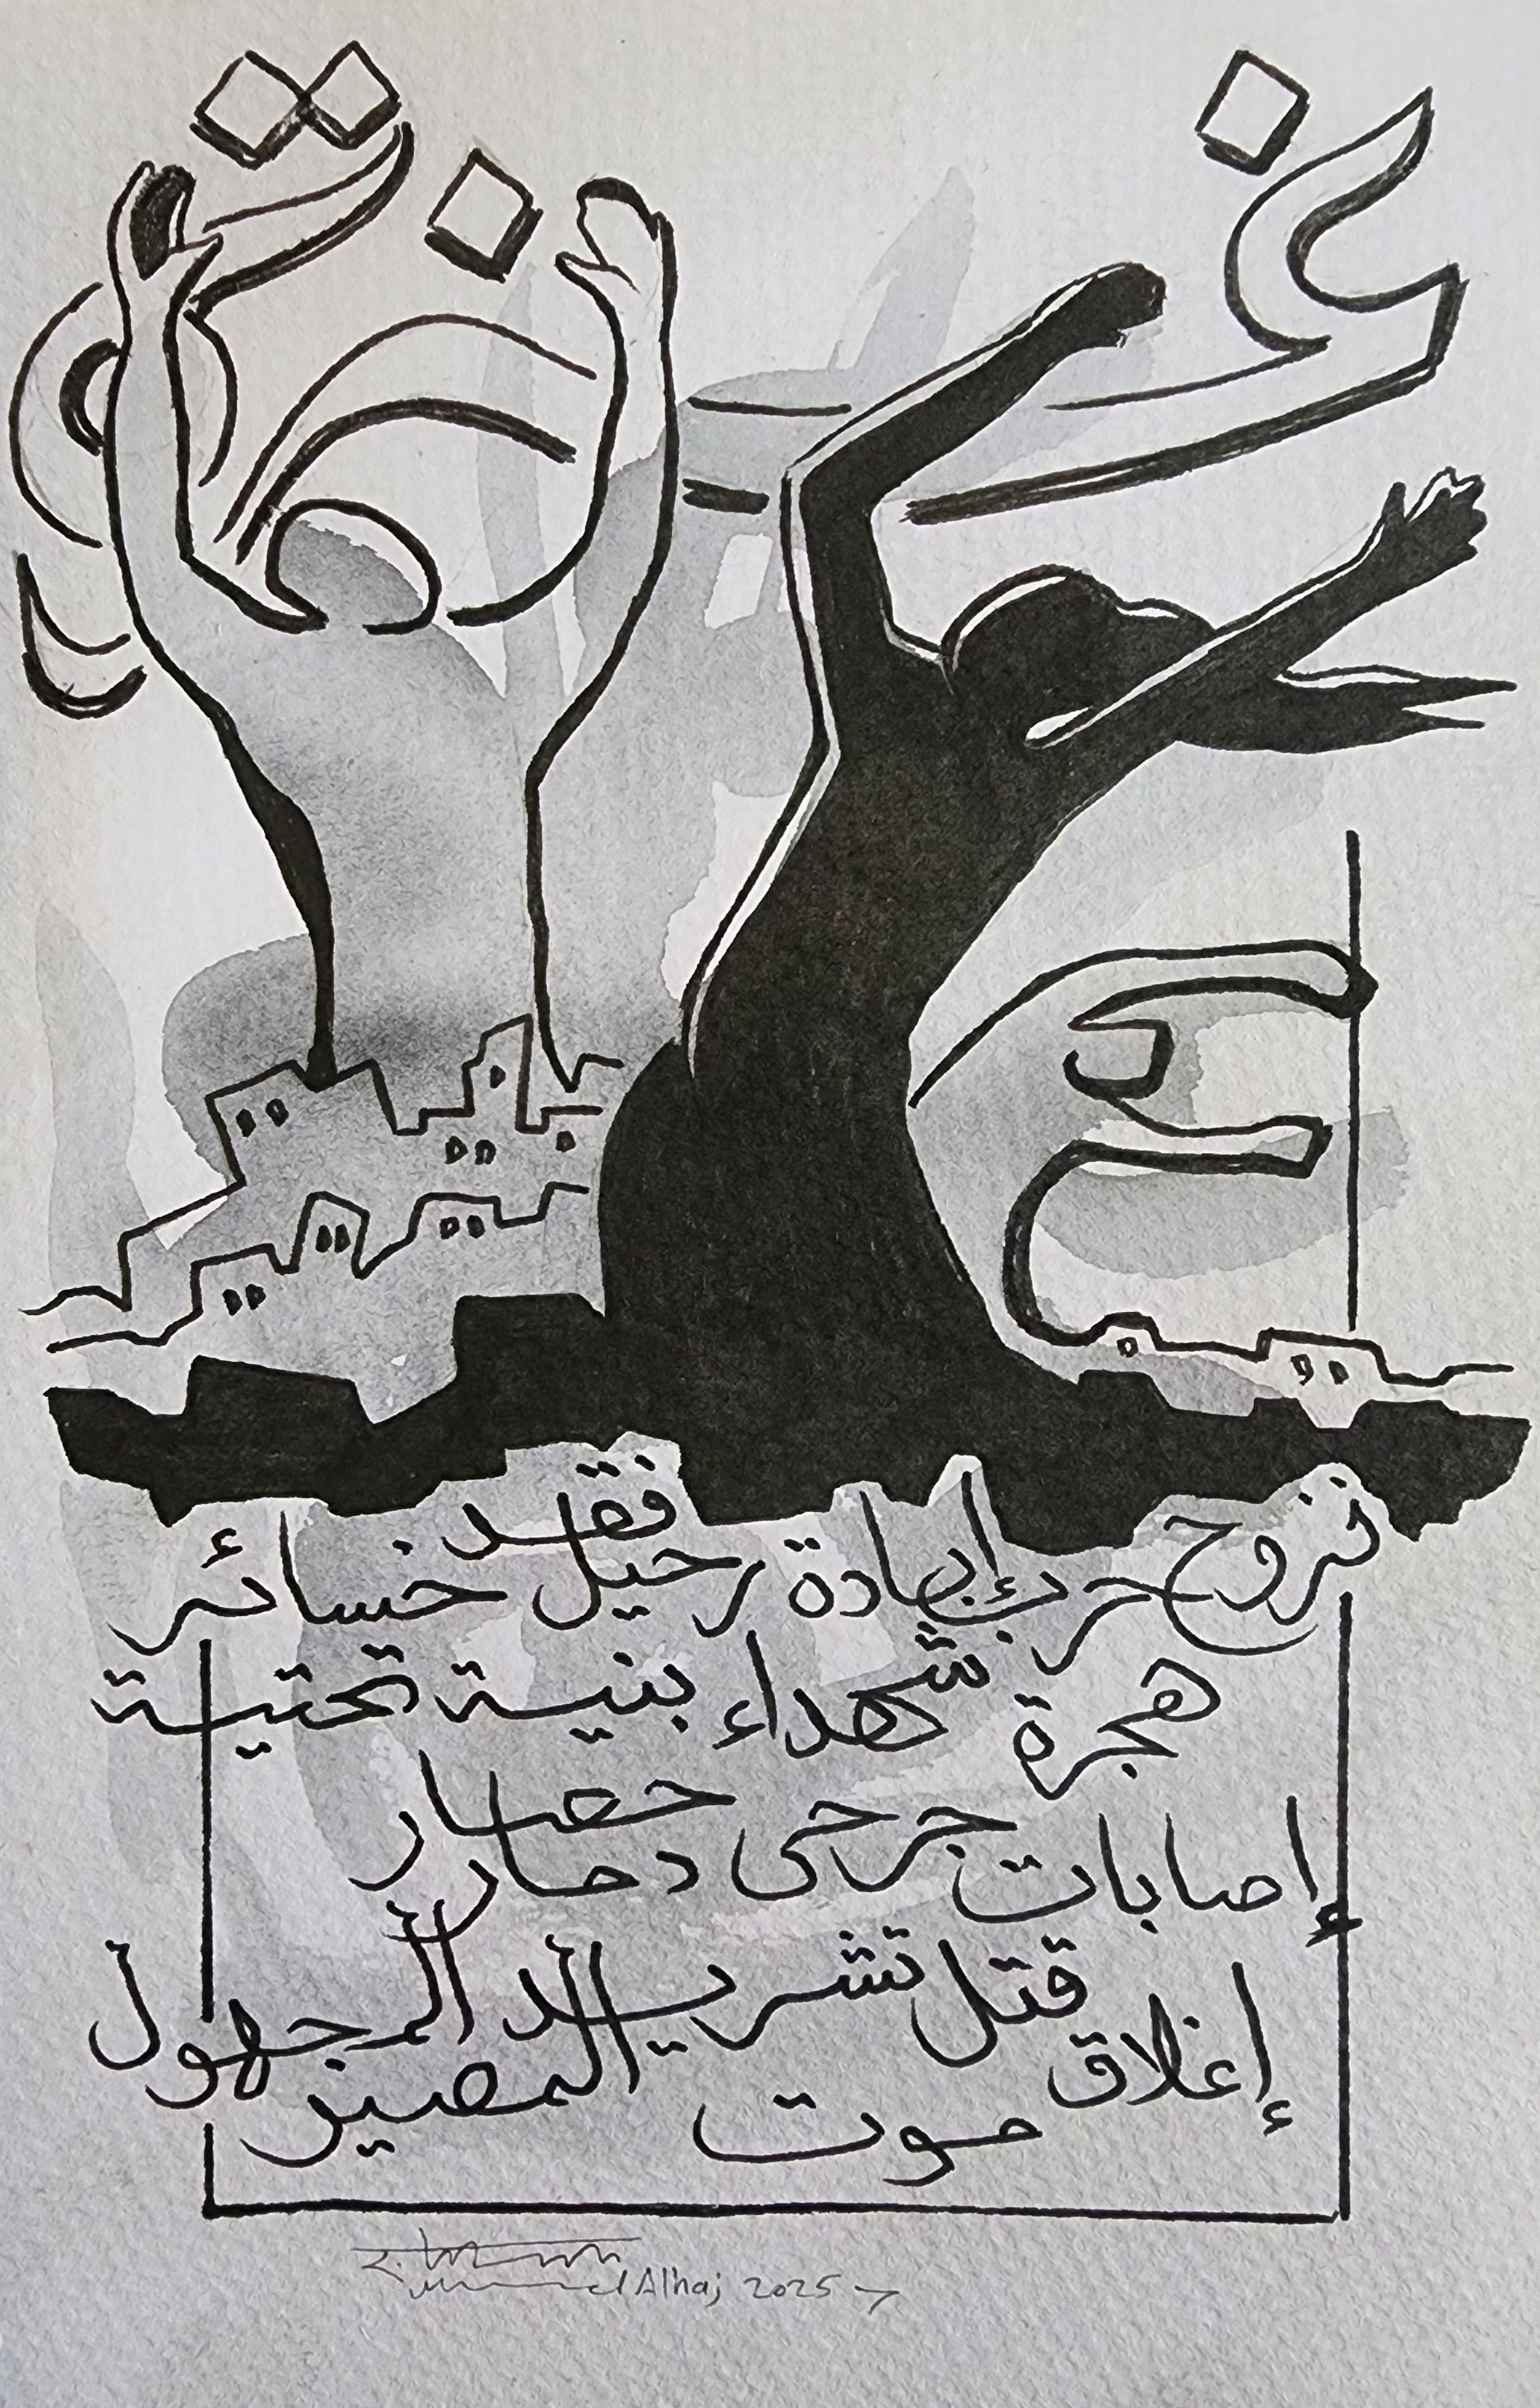 غزة
نزوح حرب إبادة رحيل فقد خسائر
هجرة شهداء بنية تحتية
إصابات جرحى دمار حصار
إغلاق قتل تشريد
موت المصير المجهول
Alhaj 2025